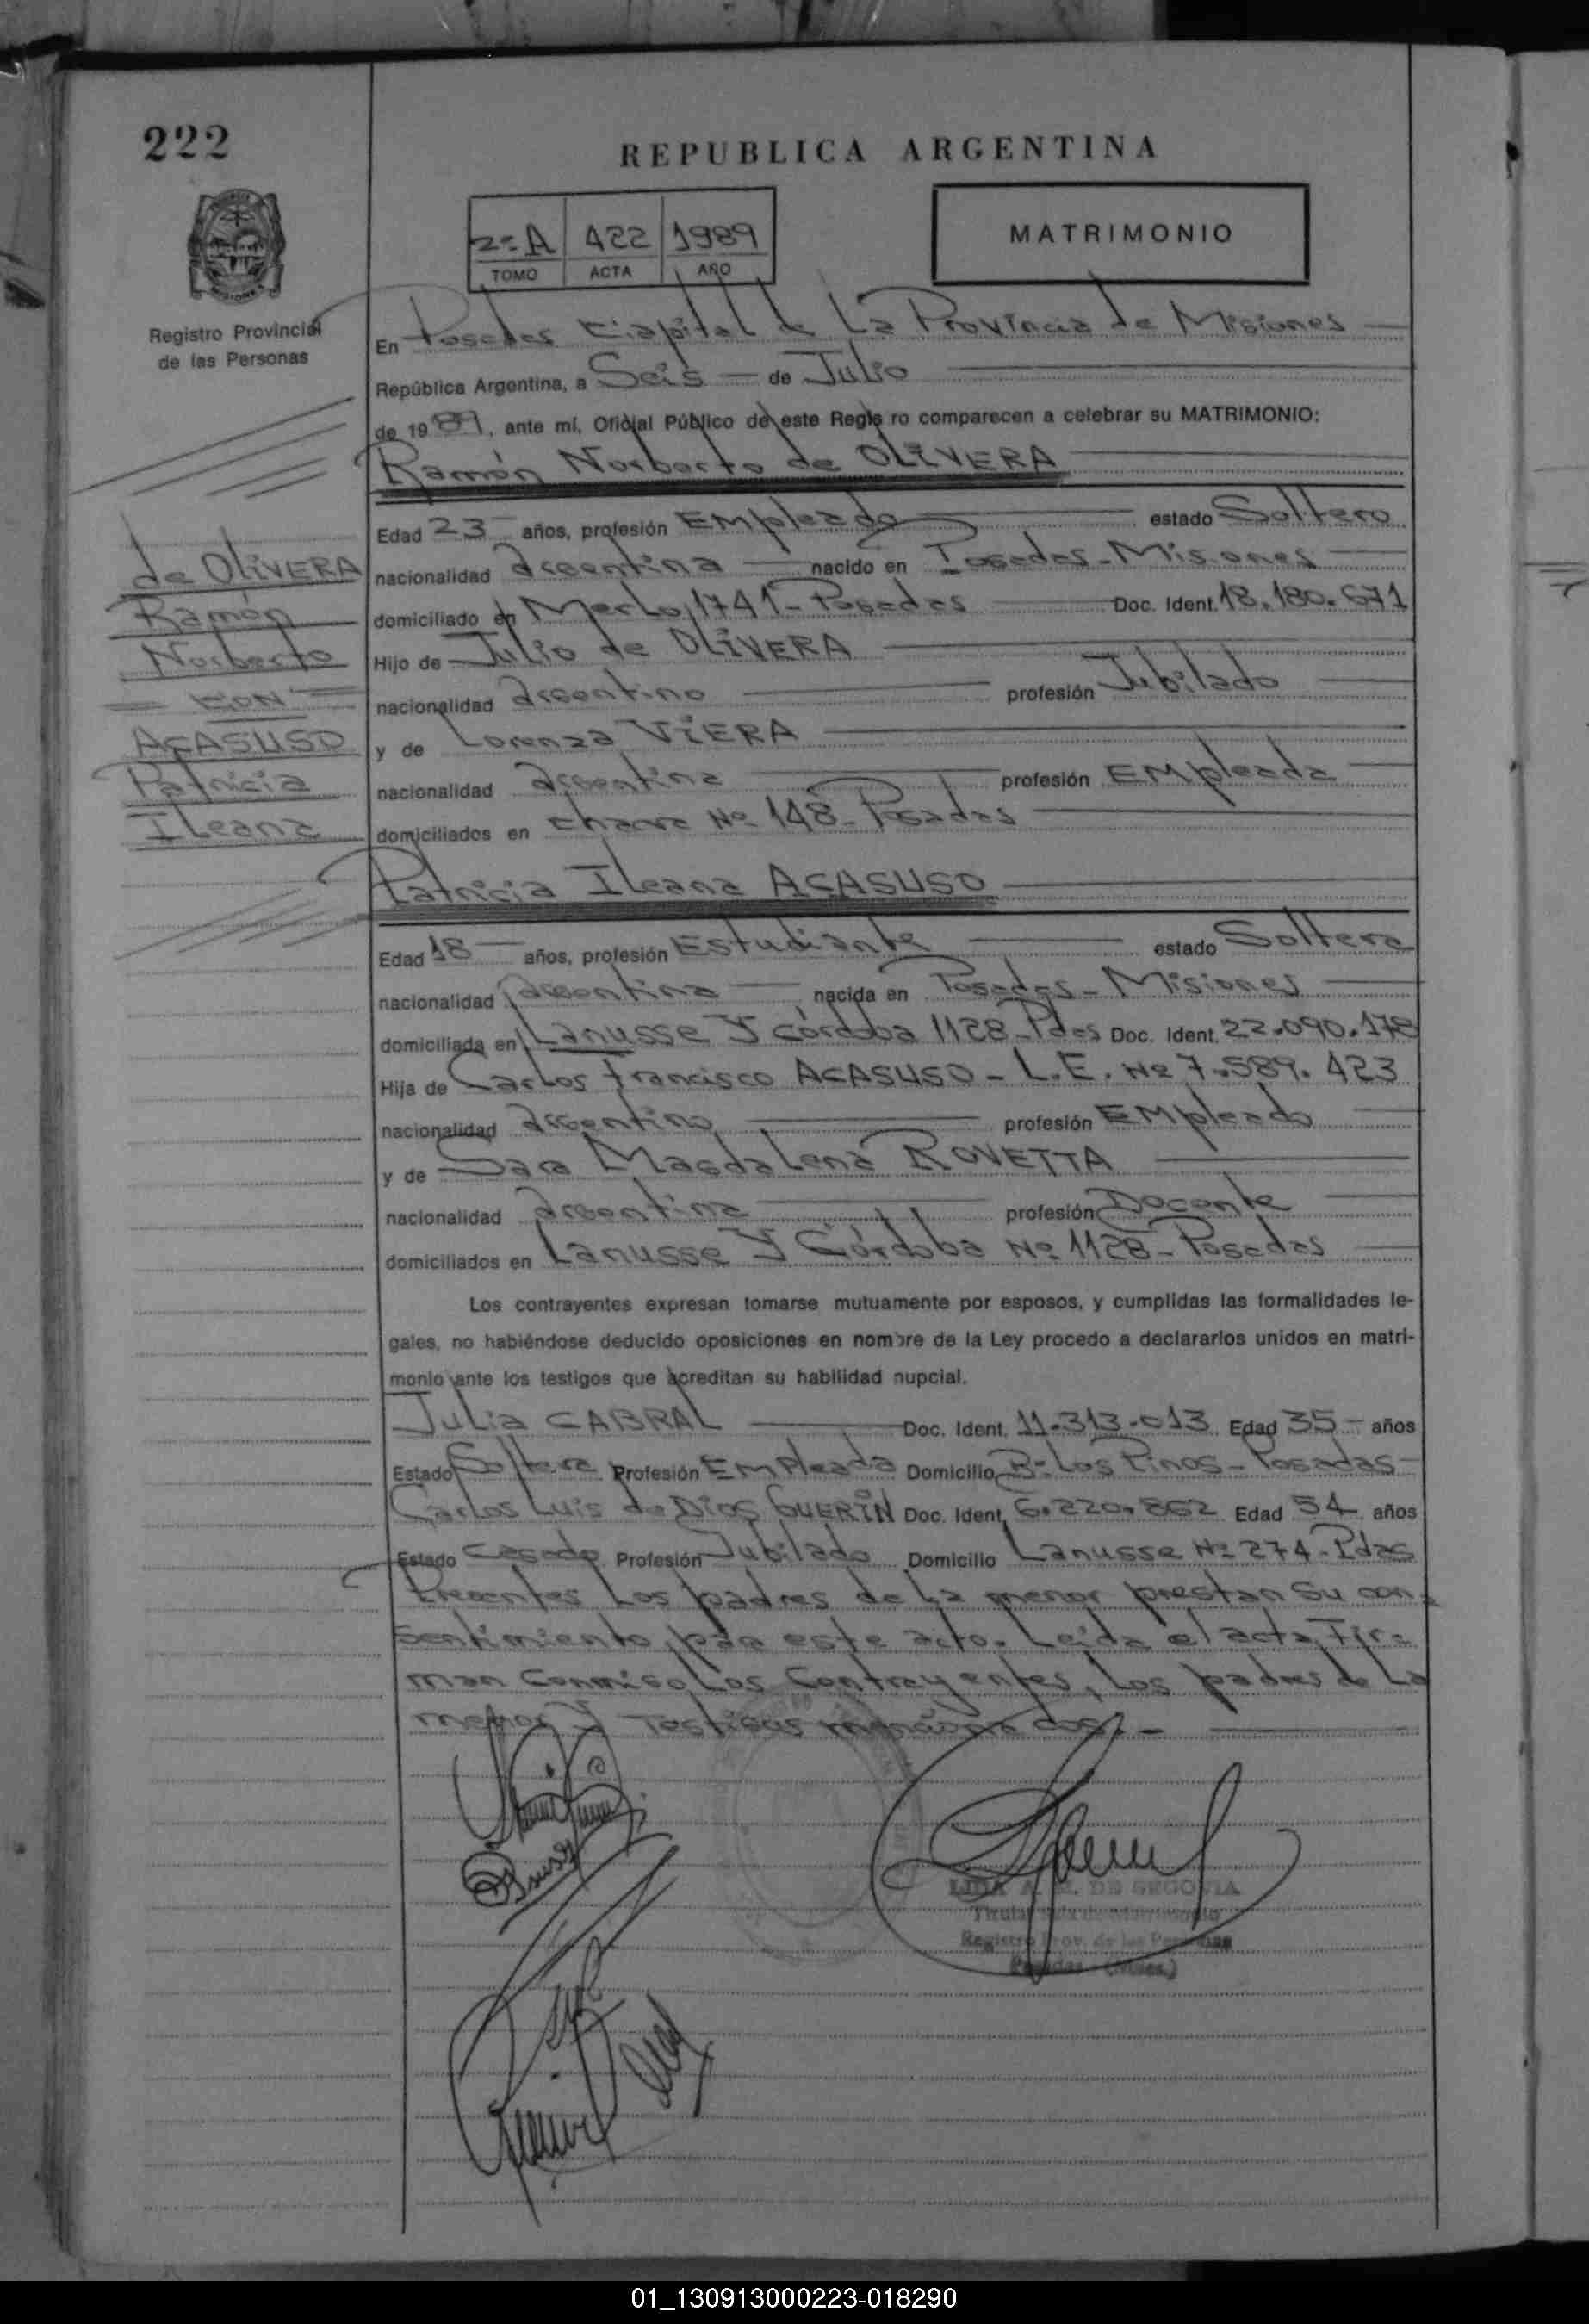 222
REPUBLICA ARGENTINA
2º A 422 1989
TOMO ACTA AÑO
MATRIMONIO
Registro Provincial
de las Personas
En Posadas Capital de La Provincia de Misiones
República Argentina, a Seis de Julio
de 1989, ante mí, Oficial Público de este Regis ro comparecen a celebrar su MATRIMONIO:
Ramón Norberto de OLIVERA
Edad 23 años, profesión Empleado estado Soltero
nacionalidad argentina nacido en Posadas - Misiones
domiciliado en Merlo 1741 - Posadas Doc. Ident. 18.180.671
Hijo de Julio de OLIVERA
nacionalidad argentino profesión Jubilado
y de Lorenza VIERA
nacionalidad argentina profesión Empleada
domiciliados en chacra Nº 148 - Posadas
de OLIVERA
Ramón
Norberto
CON
ACASUSO
Patricia
Ileana
Patricia Ileana ACASUSO
Edad 18 años, profesión Estudiante estado Soltera
nacionalidad argentina nacida en Posadas - Misiones
domiciliada en Lanusse y Córdoba 1128 - Pdas Doc. Ident. 22.090.178
Hija de Carlos Francisco ACASUSO - L.E. Nº 7.589.423
nacionalidad argentino profesión Empleado
y de Sara Magdalena ROVETTA
nacionalidad argentina profesión Docente
domiciliados en Lanusse y Córdoba Nº 1128 - Posadas
Los contrayentes expresan tomarse mutuamente por esposos, y cumplidas las formalidades le-
gales, no habiéndose deducido oposiciones en nombre de la Ley procedo a declararlos unidos en matri-
monio ante los testigos que acreditan su habilidad nupcial.
Julia CABRAL Doc. Ident. 11.313.013 Edad 35 años
Estado Soltera Profesión Empleada Domicilio Bº Los Pinos - Posadas
Carlos Luis de Dios GUERIN Doc. Ident. 6.220.862 Edad 54 años
Estado Casado Profesión Jubilado Domicilio Lanusse Nº 274 - Pdas
Presentes Los padres de La menor prestan su con-
sentimiento para este acto. Leida el acta, Fir-
man conmigo Los Contrayentes, Los padres de La
menor y Testigos mencionados. -
LIDA A. DE SEGOVIA
Titular
Registro Prov. de las Personas
Posadas - (Mnes.)
01_130913000223-018290